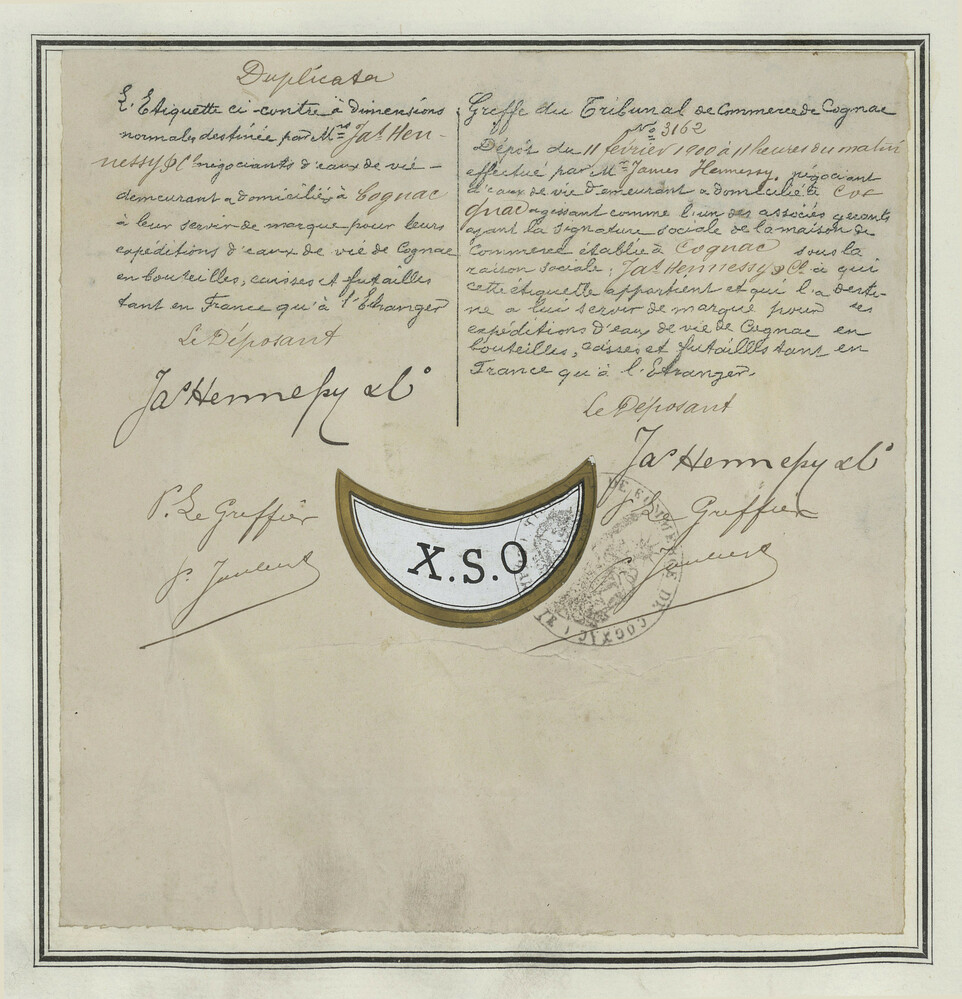 Duplicata
L'Etiquette ci-contre à dimensions
normales destinée par Mrs Jas Hen-
nessy & Co négociants d'eaux de vie -
demeurant & domiciliés à Cognac
à leur servir de marque pour leurs
expéditions d'eaux de vie de Cognac
en bouteilles, caisses et futailles
tant en France qu'à l'Etranger
Le Déposant
Jas Hennessy & Co
P. Le Greffier
Greffe du Tribunal de Commerce de Cognac
No 3162
Dépôt du 11 février 1900 à 11 heures du matin
effectué par Mr James Hennessy, négociant
d'eaux de vie demeurant & domicilié à Cog
gnac agissant comme l'un des associés gérants
ayant la signature sociale de la maison de
Commerce établie à Cognac sous la
raison sociale: Jas Hennessy & Co à qui
cette étiquette appartient et qui l'a desti-
né a lui servir de marque pour ses
expéditions d'eaux de vie de Cognac en
bouteilles, caisses et futailles tant en
France qu'à l'Etranger.
Le Déposant
Jas Hennessy & Co
P. Le Greffier
X.S.O
DE COMMERCE DE COGNAC